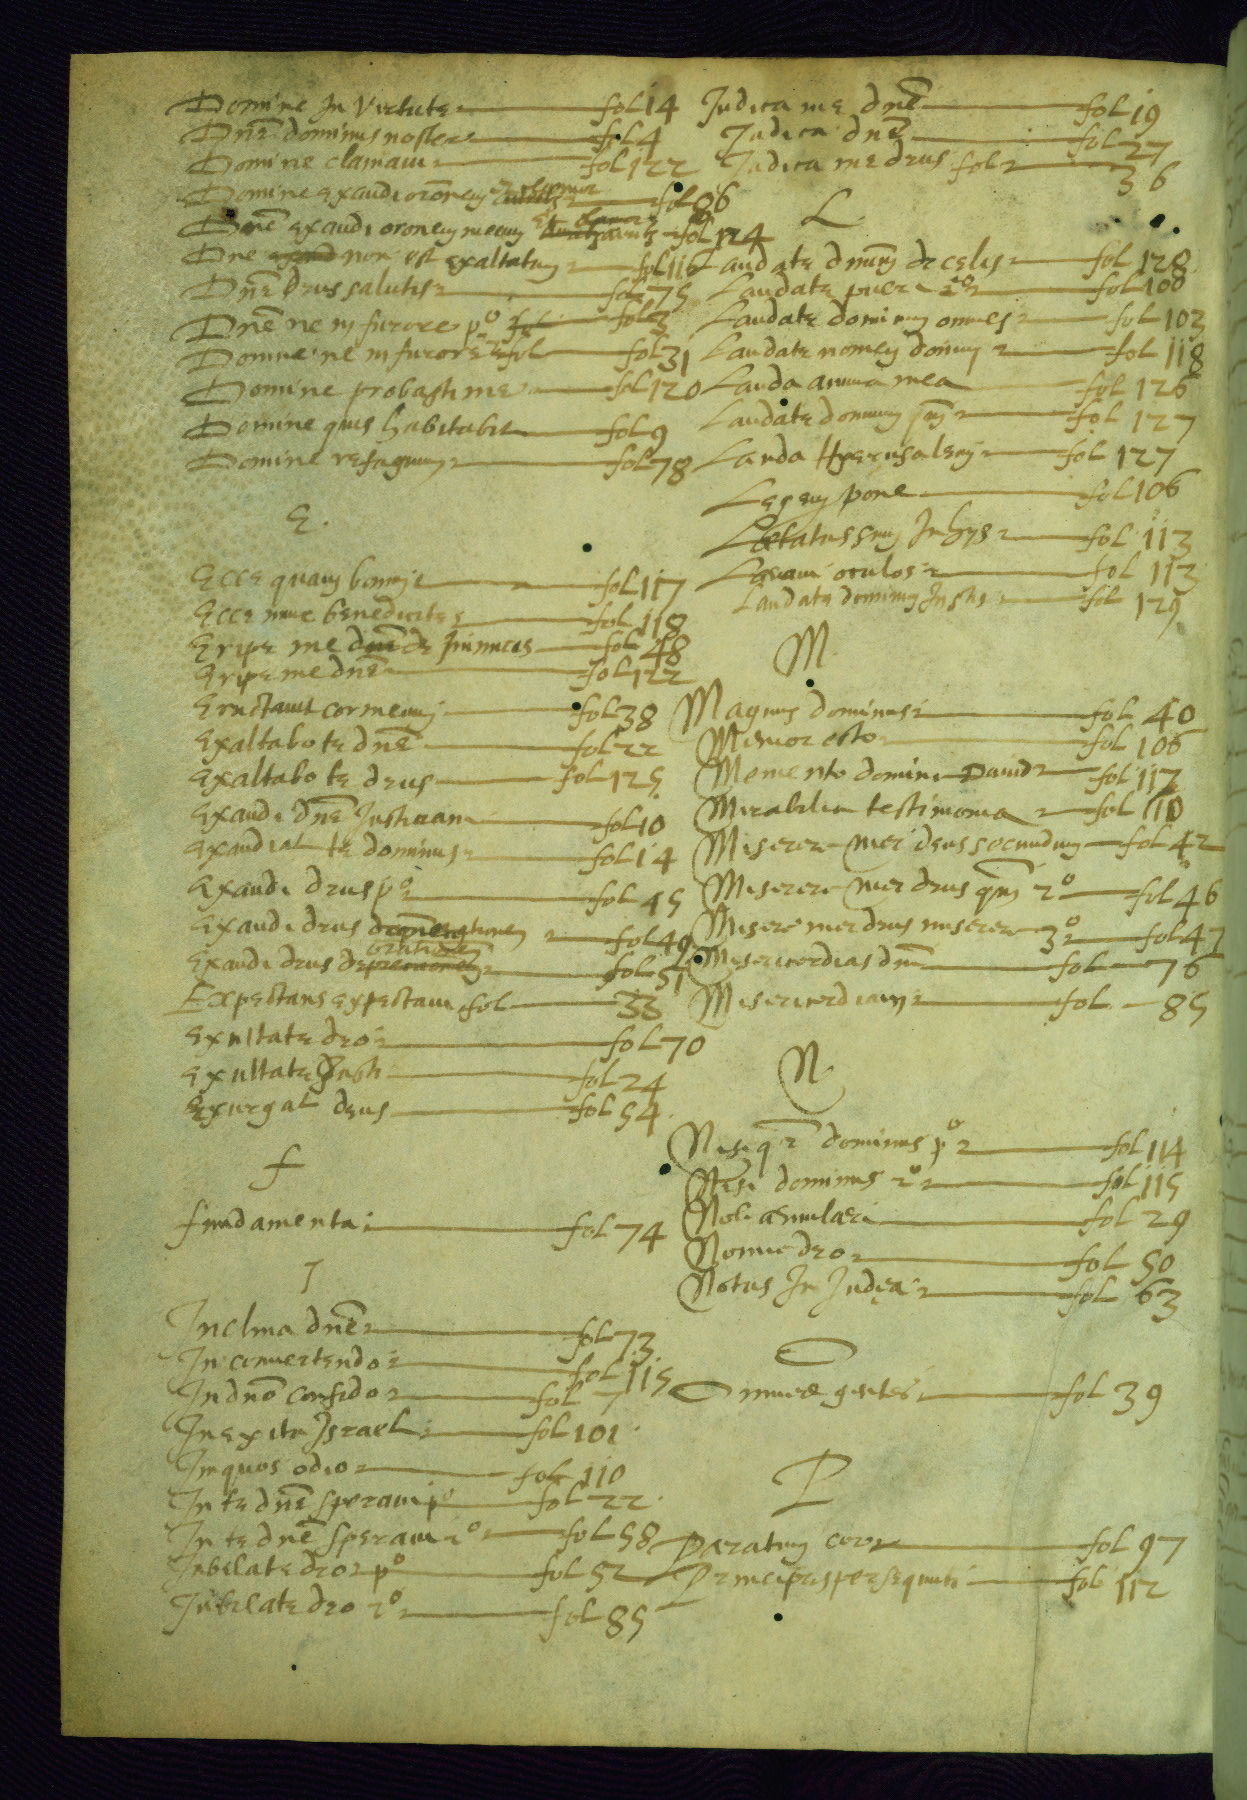 Domine In Virtute fol 14
Dnē dominus noster fol 4
Domine clamavi fol 122
Domine exaudi orōnem fol 86
Dnē exaudi oronem meam fol 124
Dne non est exaltatum fol 116
Dnē Deus salutis fol 75
Dnē ne in furore pº fol 3
Domine ne in furore 2º fol 31
Domine probasti me fol 120
Domine quis habitabit fol 9
Domine refugium fol 78
E.
Ecce quam bonum fol 117
Ecce nunc benedicite fol 118
Eripe me dnē de Inimicis fol 48
Eripe me dnē fol 122
Eructavit cor meum fol 38
Exaltabo te dnē fol 22
Exaltabo te deus fol 125
Exaudi dnē Justitiam fol 10
Exaudiat te dominus fol 14
Exaudi deus pº fol 45
Exaudi deus orationem fol 49
Exaudi deus deprecationem fol 51
Expectans expectavi fol 33
Exultate deo fol 70
Exultate Justi fol 24
Exurgat deus fol 54
f
fundamenta fol 74
I
Inclina dnē fol 73
In convertendo fol 115
In dnō confido fol 7
In exitu Israel fol 101
Iniquos odio fol 110
In te dnē speravi pº fol 22
In te dnē speravi 2º fol 58
Iubilate deo pº fol 52
Iubilate deo 2º fol 85
Judica me dnē fol 19
Judica dnē fol 27
Judica me deus fol 36
L
Laudate dnum de celis fol 128
Laudate pueri fol 100
Laudate dominum omnes fol 103
Laudate nomen domini fol 118
Lauda anima mea fol 126
Laudate dominum qm̄ fol 127
Lauda Hyerusalem fol 127
Legem pone fol 106
Letatus sum In hys fol 113
Levavi oculos fol 113
Laudate dominum In sctis fol 129
M
Magnus dominus fol 40
Memor esto fol 106
Memento domine David fol 117
Mirabilia testimonia fol 110
Miserere mei deus secundum fol 42
Miserere mei deus qm̄ 2º fol 46
Misere mei deus miserere 3º fol 47
Misericordias dnī fol 76
Misericordiam fol 85
N
Nisi q̄ dominus pº fol 114
Nisi dominus 2º fol 115
Noli emulari fol 29
Nonne deo fol 50
Notus In Judęa fol 63
O
Omnes gentes fol 39
P
Paratum cor fol 97
Principes persequuti fol 112